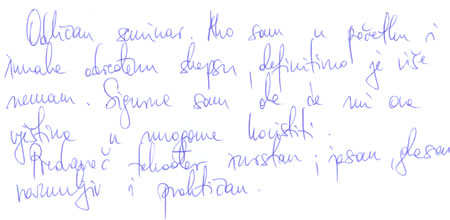 Odličan seminar. Ako sam u početku i
imala određenu skepsu, definitivno je više
nemam. Sigurna sam da će mi ova
vještina u mnogome koristiti.
Predavač također izvrstan, jasan, glasan
razumljiv i praktičan.